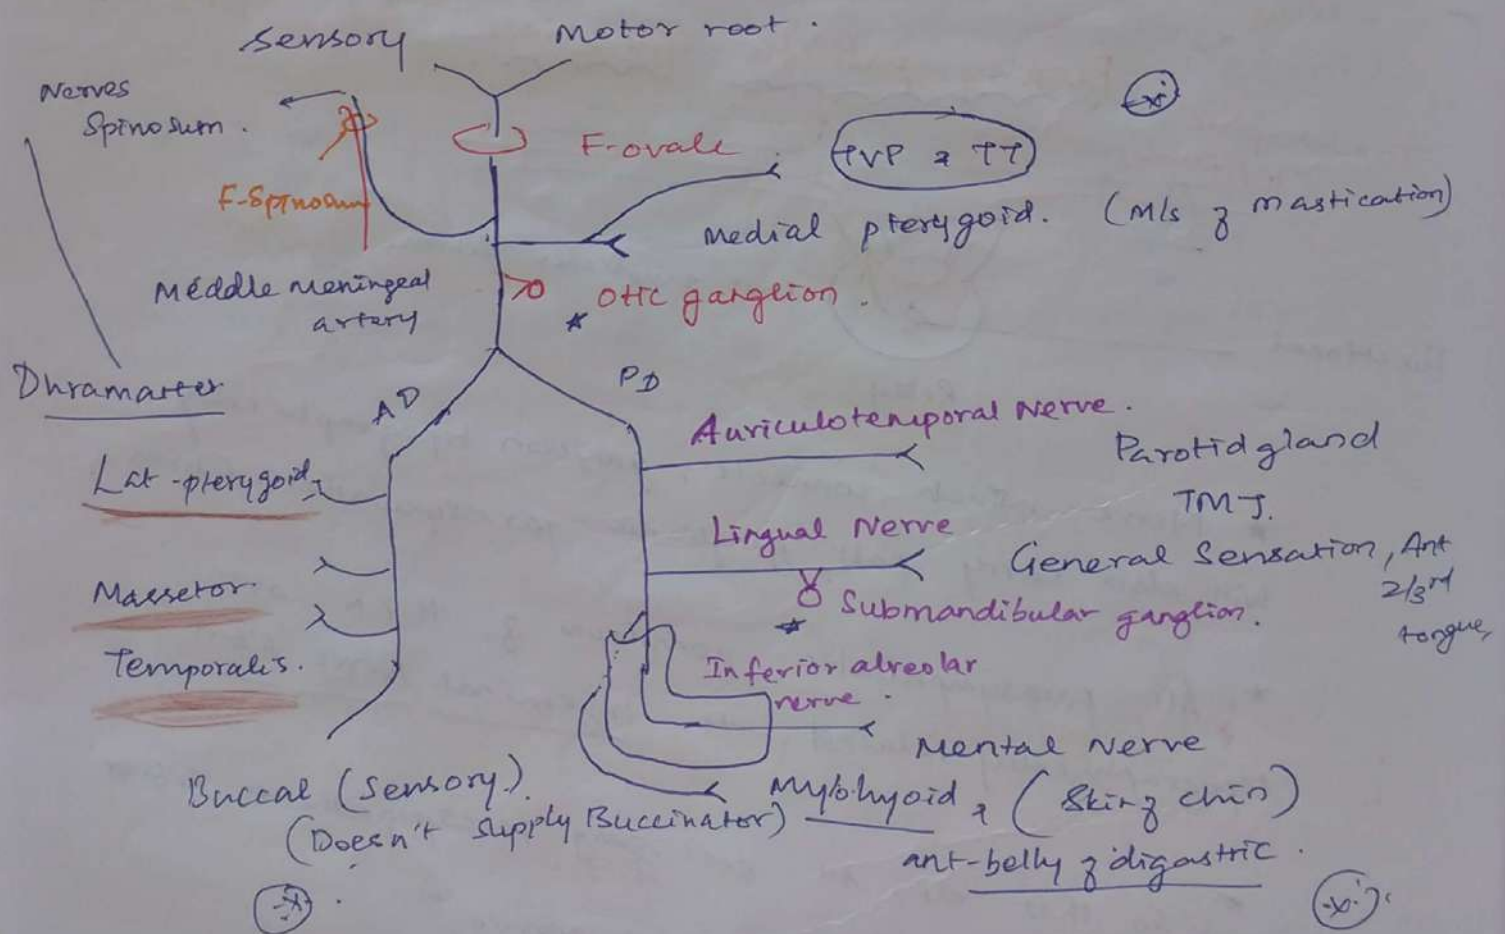 Sensory
Motor root.
Nerves
Spinosum.
F-ovale
TVP & TT
F-Spinosum
Medial pterygoid. (M/s of mastication)
Meddle meningeal
artery
Otic ganglion.
Dhramarter
AD
PD
Auriculotemporal Nerve.
Parotid gland
TMJ.
Lat-pterygoid
Lingual Nerve
General Sensation, Ant
2/3rd
tongue,
Massetor
Submandibular ganglion.
Temporalis.
Inferior alveolar
nerve.
Mental Nerve
Buccal (Sensory).
(Doesn't supply Buccinator)
Mylohyoid & (Skin of chin)
ant-belly of digastric.